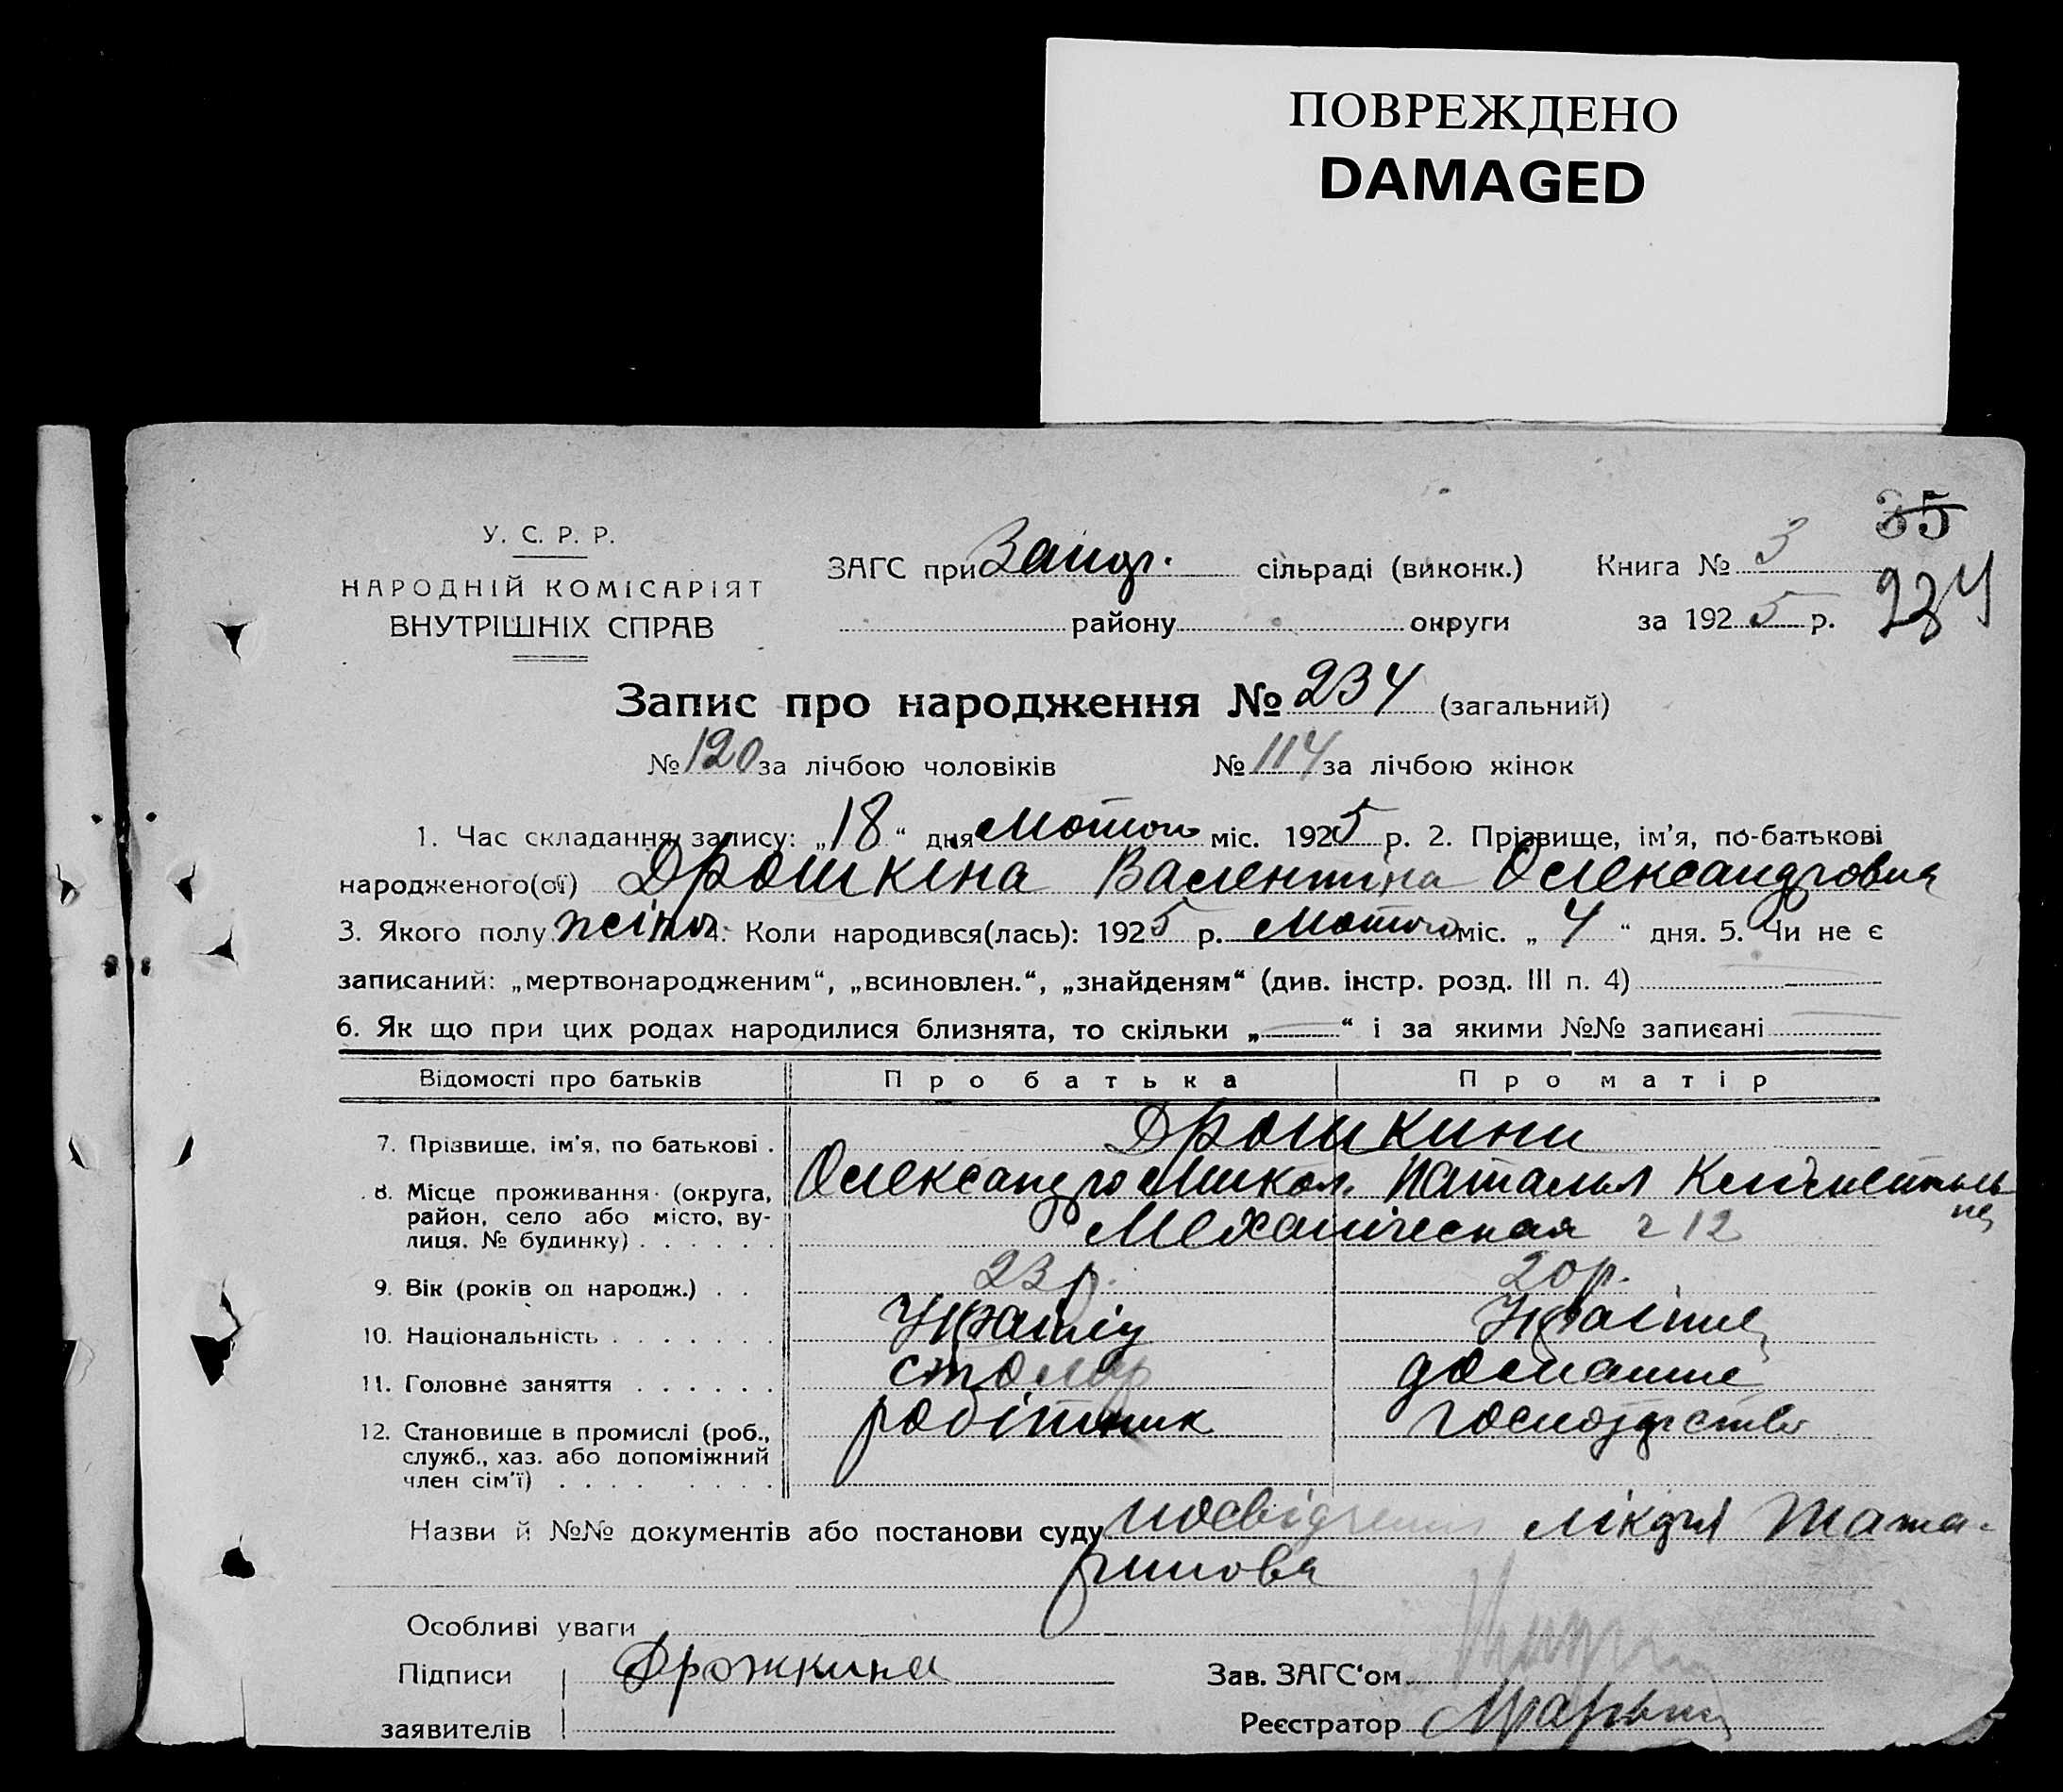 ПОВРЕЖДЕНО
DAMAGED
35
У. С. Р. Р.
НАРОДНІЙ КОМІСАРІЯТ
ВНУТРІШНІХ СПРАВ
ЗАГС при сільраді (виконк.) Книга № 3
району округи за 1925 р. 234
Запис про народження № 234 (загальний)
№ 120 за лічбою чоловіків № 114 за лічбою жінок
1. Час складання запису: „18“ дня міс. 1925 р. 2. Прізвище, ім'я, по-батькові
народженого(ої) Дрошкіна Валентина Олександровна
3. Якого полу жіноч. 4. Коли народився(лась): 1925 р. Мотого міс. „4“ дня. 5. Чи не є
записаний: „мертвонародженим“, „всиновлен.“, „знайденям“ (див. інстр. розд. III п. 4)
6. Як що при цих родах народилися близнята, то скільки „—“ і за якими №№ записані
Відомості про батьків Про батька Про матір
Дрошкини
7. Прізвище, ім'я, по батькові .
Олександро Микол. Наталья
8. Місце проживання (округа,
район, село або місто, ву-
лиця, № будинку) . . . . . .
Механическая 12
9. Вік (років од народж.) . . 23 р. 20 р.
10. Національність . . . . . . .
11. Головне заняття . . . . . . столяр домашне
12. Становище в промислі (роб., робітник господарство
служб., хаз. або допоміжний
член сім'ї) . . . . . . . .
Назви й №№ документів або постанови суду посвідчення лікаря Тата-
ринова
Особливі уваги
Підписи Дрожкина Зав. ЗАГС'ом
заявителів Реєстратор